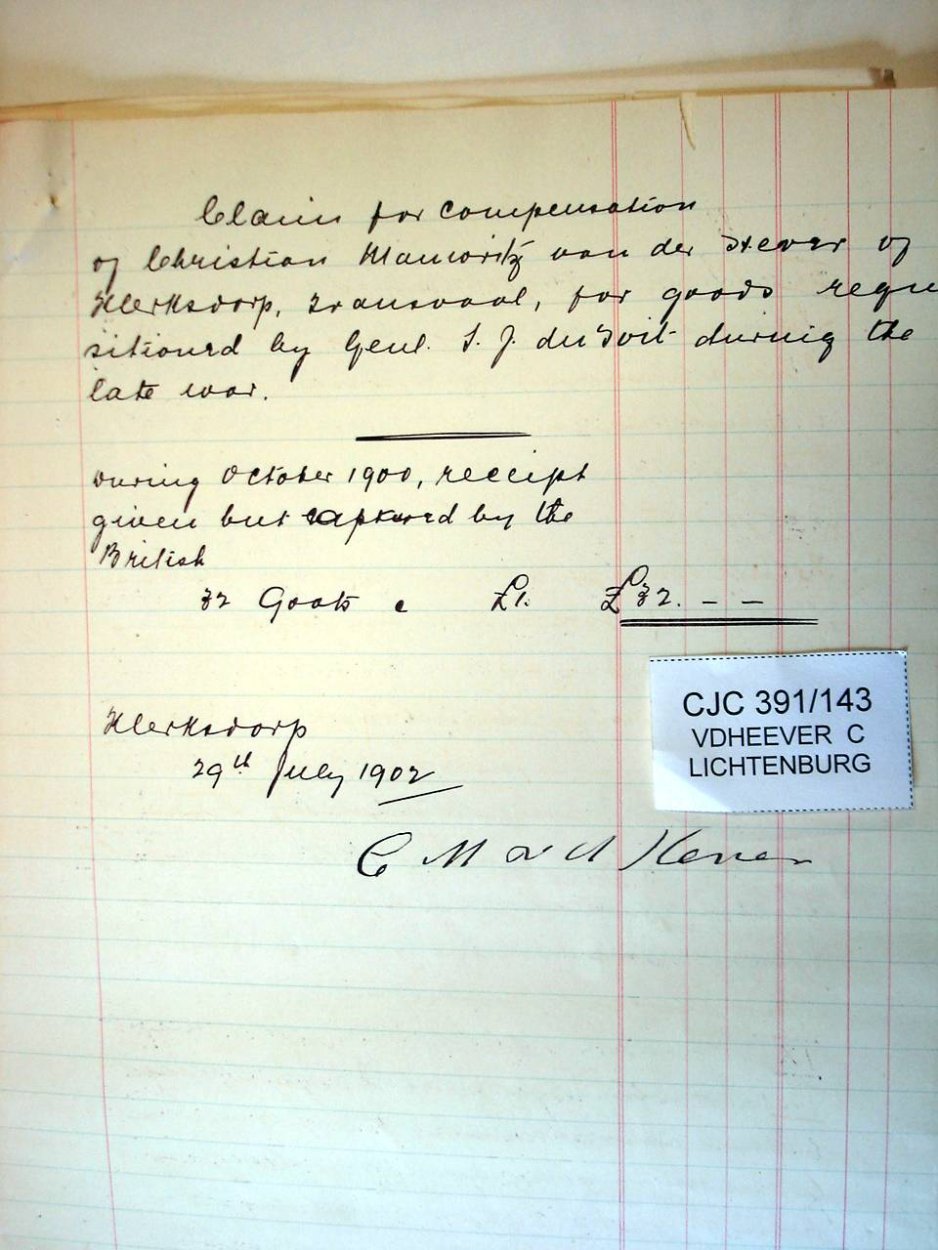 Claim for compensation
of Christian Mauwritz van der Hever of
Klerksdorp, Transvaal, for goods requ
sitioned by Genl. S. J. du Toit during the
late war.
During October 1900, receipt
given but captured by the
British
32 Goats @ £1. £32. – –
Klerksdorp
29th July 1902
C M v d Hever
CJC 391/143
VDHEEVER C
LICHTENBURG